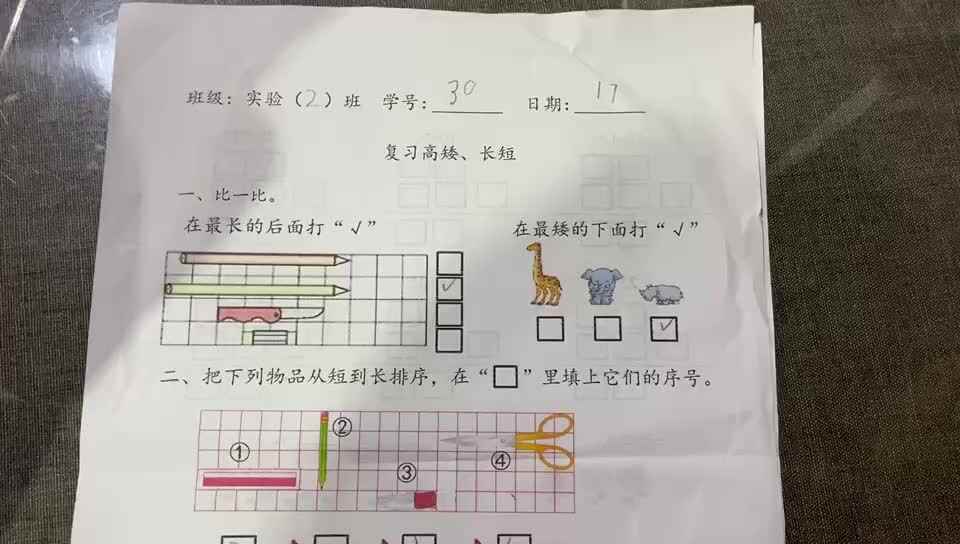 班级：实验（2）班 学号：30 日期：17
复习高矮、长短
一、比一比。
在最长的后面打“√” 在最矮的下面打“√”
√
√
二、把下列物品从短到长排序，在“□”里填上它们的序号。
②
①
③
④